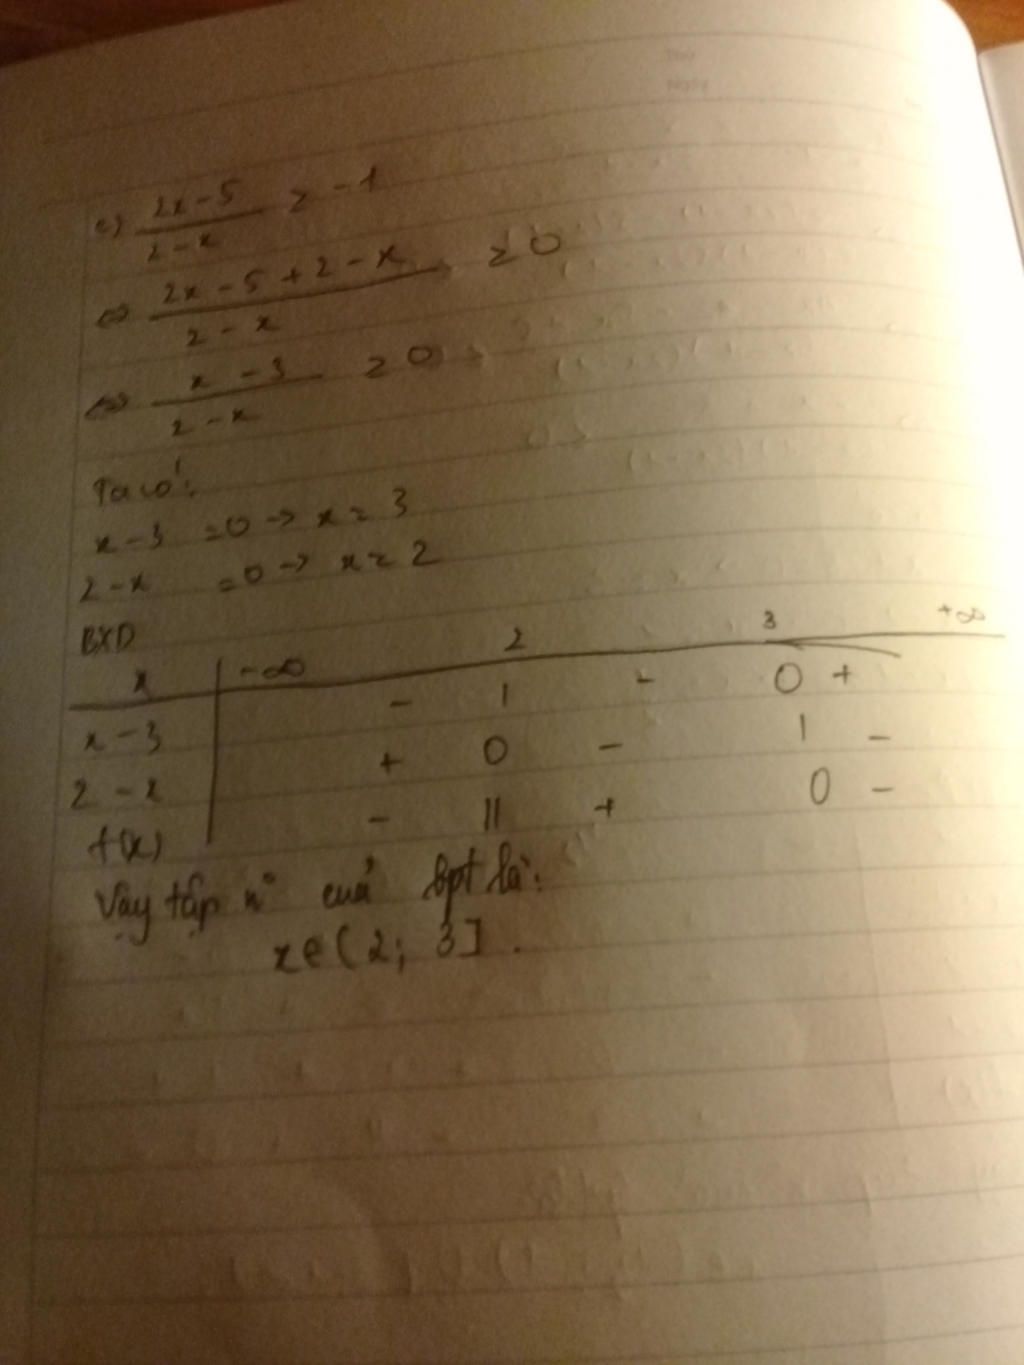 Thứ
Ngày
c) (2x - 5)/(2 - x) ≥ -1
⇔ (2x - 5 + 2 - x)/(2 - x) ≥ 0
⇔ (x - 3)/(2 - x) ≥ 0
Ta có:
x - 3 = 0 → x = 3
2 - x = 0 → x = 2
BXD
x | -∞ 2 3 +∞
x - 3 | - | - 0 +
2 - x | + 0 - | -
f(x) | - || + 0 -
Vậy tập n° của bpt là:
x ∈ (2; 3].